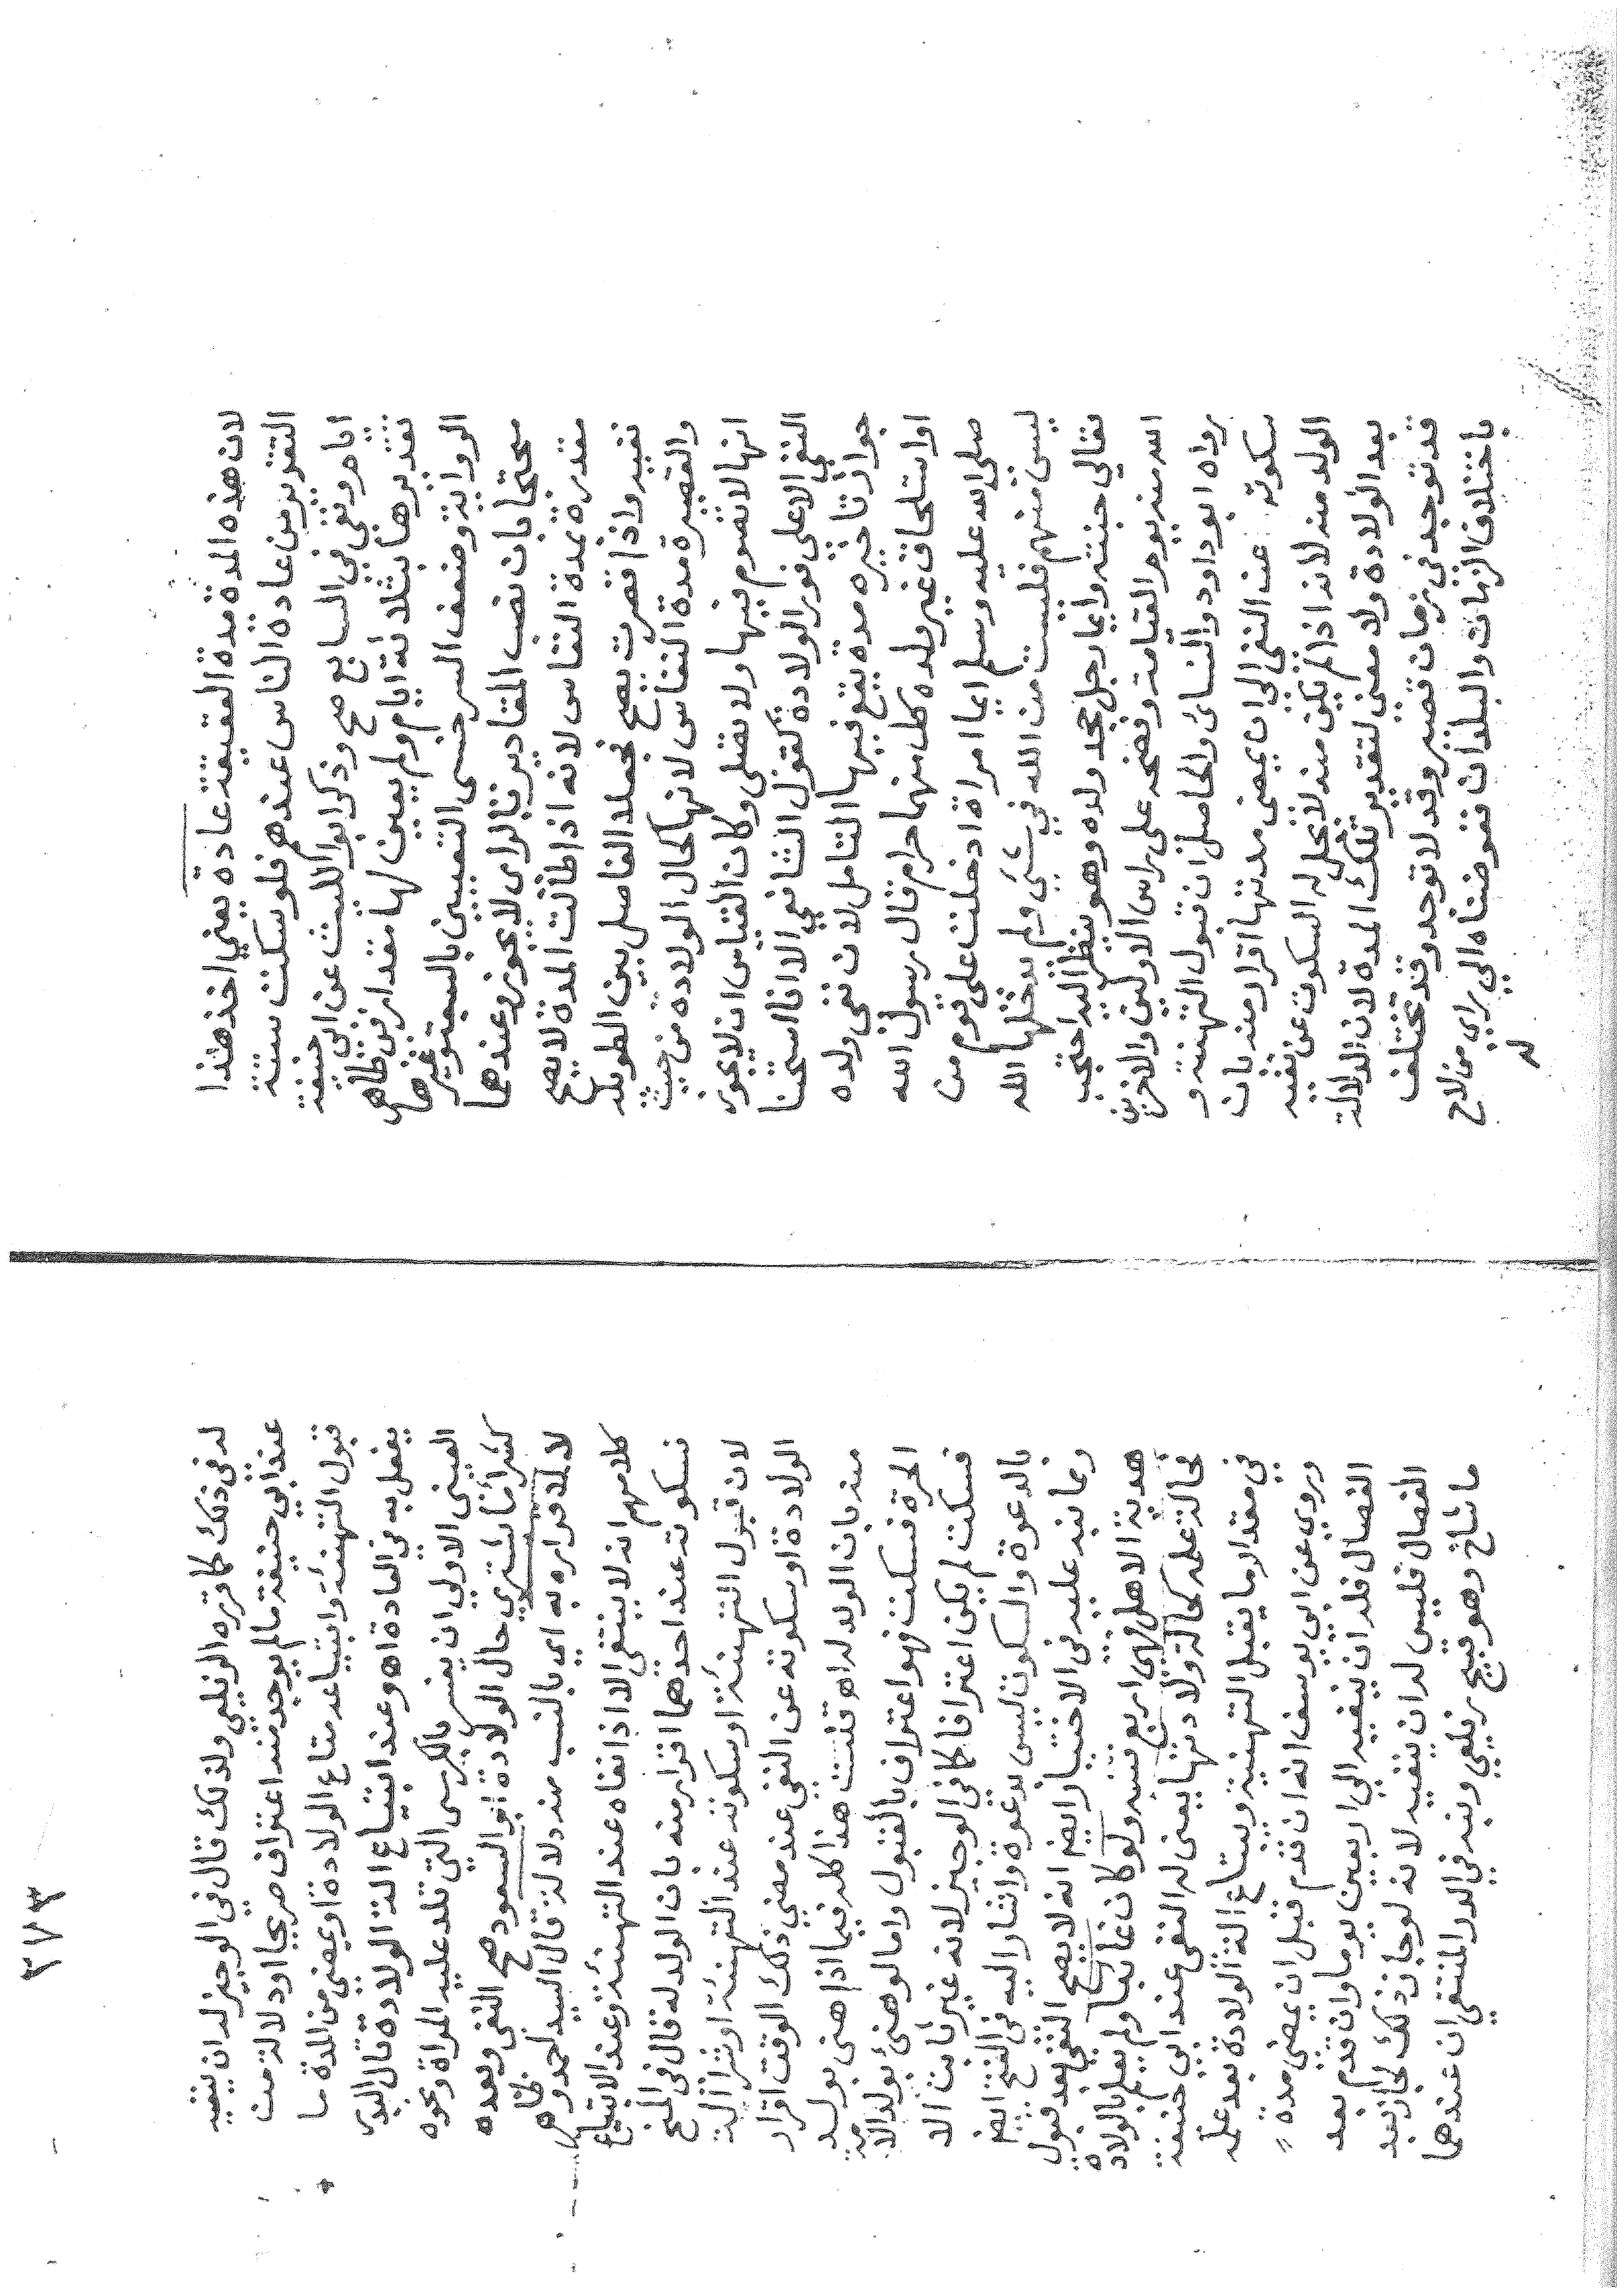 لان هذه المدة مدة العقيقة عادة يعني اخذ هذا
التقدير من عادة الناس عندهم فلو سكت ستة
ايام ونفي في السابع صح وذكر ابو الليث عن ابي حنيفة
تقديرها بثلاثة ايام ولم يعين لها مقدار في ظاهر
الرواية وضعف السرخسي التعيين بالسبعة وغيرها
محتجا بان نصب المقادير بالراي لا يجوز وعندهما
مقدرة بمدة النفاس لانه اذا طالت المدة لا يصح
نفيه واذا قصرت يصح فجعلا الفاصل بين الطويلة
والقصيرة مدة النفاس لانها كحال الولادة من حيث
انها لا تصوم فيها ولا تصلي وكان القياس ان لا يجوز
النفي الا على فور الولادة كقول الشافعي الا انا استحسنا
جواز تاخيره مدة يقع فيها التامل لان نفي ولده
او استلحاق غير ولده كل منهما حرام قال رسول الله
صلى الله عليه وسلم ايما امراة ادخلت على قوم من
ليس منهم فليست من الله في شئ ولم يدخلها الله
تعالى جنته وايما رجل جحد ولده وهو ينظر اليه احتجب
الله منه يوم القيامة وفضحه على راس الاولين والاخرين
رواه ابو داود والنسائ والحاصل ان قبول التهنئة و
سكوته عند النفي الى ان يمضي مدتها اقرار منه بان
الولد منه لانه اذا لم يكن منه لا يحل له السكوت عن نفيه
بعد الولادة ولا معنى لتقدير تلك المدة لان الدلالة
قد توجد في زمان قصير وقد لا توجد وقد تختلف
باختلاف الزمان والبلدان ففوضناه الى راي من لاح
له
٢٧٣
له في ذلك كما قرره الزيلعي ولذلك قال في الوجيز له ان ينفيه
عند ابي حنيفة ما لم يوجد منه اعتراف صريحا او دلالة من
قبول التهنئة وابتياعه متاع الولادة او يمضي من المدة ما
يفعل به في العادة اه وعند ابتياع الة الولادة قال البدر
العيني الاولى ان يفسر بالكرسي التي تلد عليه المراة ونحوه
كثيرا ما يشترى حال الولادة ابو السعود صح النفي وبعده
لا لاقراره به اي بالنسب منه دلالة قال السيد احمد وظاهر
كلامهم انه لا ينتفي الا اذا نفاه عند التهنئة وعند الابتياع
فسكوته عند احدهما اقرار منه بان الولد له قال في المنح
لان قبول التهنئة او سكوته عند التهنئة او شرا الة
الولادة او سكوته عن النفي عند مضي ذلك الوقت اقرار
منه بان الولد له اه قلت هذا كله فيما اذا هني بولد
الحرة فسكت فهو اعتراف بالقبول واما لو هنئ بولد الامة
فسكت لم يكن اعترافا كما في الوجيز لانه غير ثابت الا
بالدعوة والسكوت ليس بدعوة واشار اليه في الفتح ايضا
ومما نبه عليه في الاختيار ايضا انه لا يصح النفي بعد قبول
هدية الاهل فهي اربع تنبه ولو كان غائبا ولم يعلم بالولادة
فحالة علمه كحالة ولادتها يعني له النفي عند ابي حنيفة
في مقدار ما يقبل التهنية ويبتاع الة الولادة بعد علمه
وروي عن ابي يوسف انه ان قدم قبل ان يمضي مدة
الفصال فله ان ينفيه الى اربعين يوما وان قدم بعد
الفصال فليس له ان ينفيه لانه لو جاز ذلك لجاز بعد
ما شاخ وهو قبيح زيلعي ونبه في الدر المنتقى ان عندهما